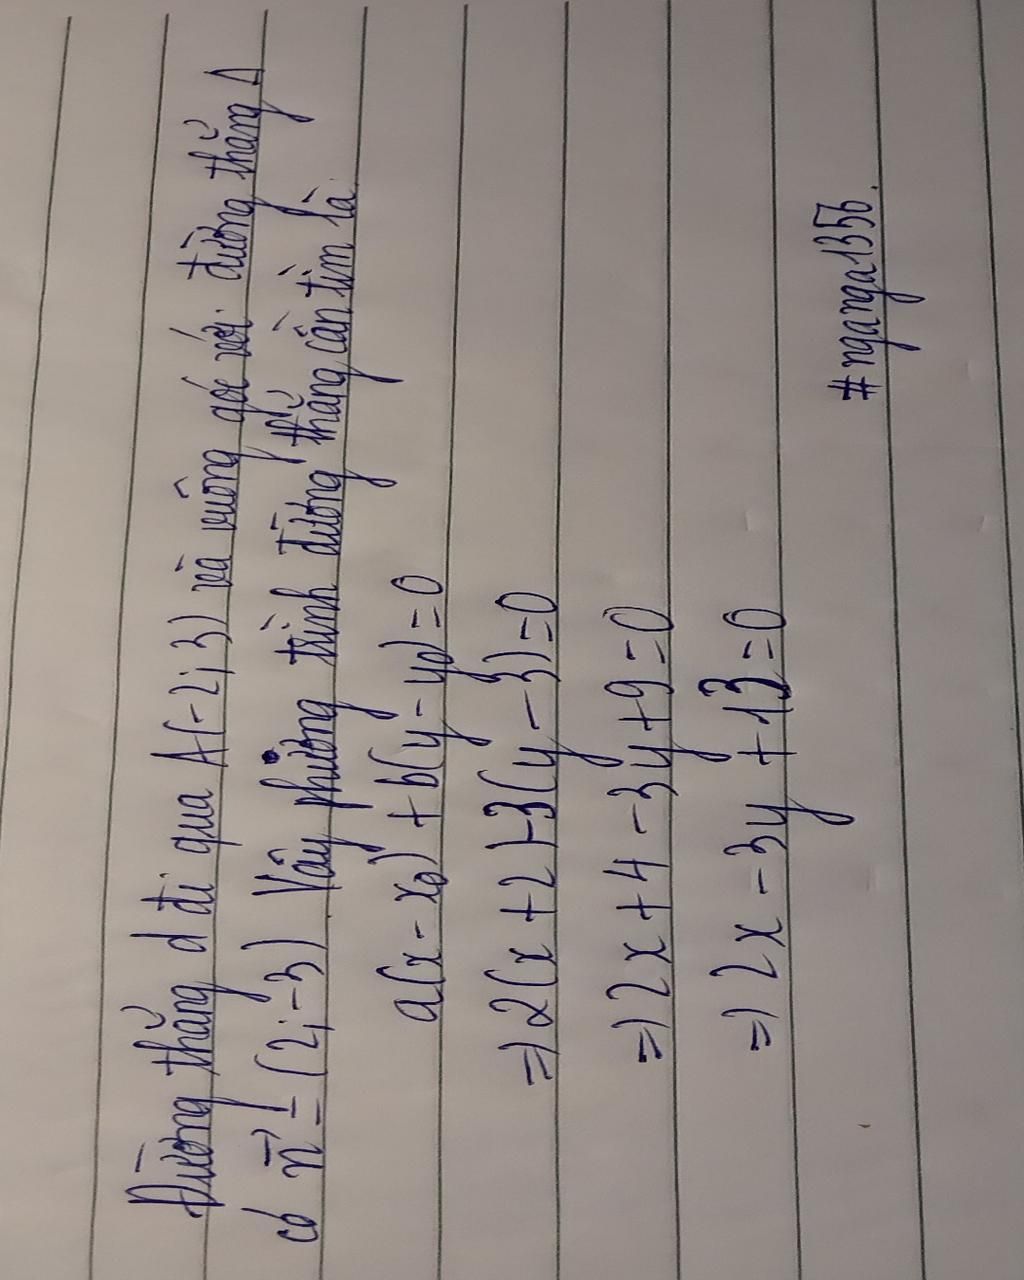 Đường thẳng d đi qua A(-2; 3) và vuông góc với đường thẳng Δ
có n⃗ = (2; -3) Vậy phương trình đường thẳng cần tìm là
a(x - x₀) + b(y - y₀) = 0
=> 2(x + 2) - 3(y - 3) = 0
=> 2x + 4 - 3y + 9 = 0
=> 2x - 3y + 13 = 0
#nganga1356.